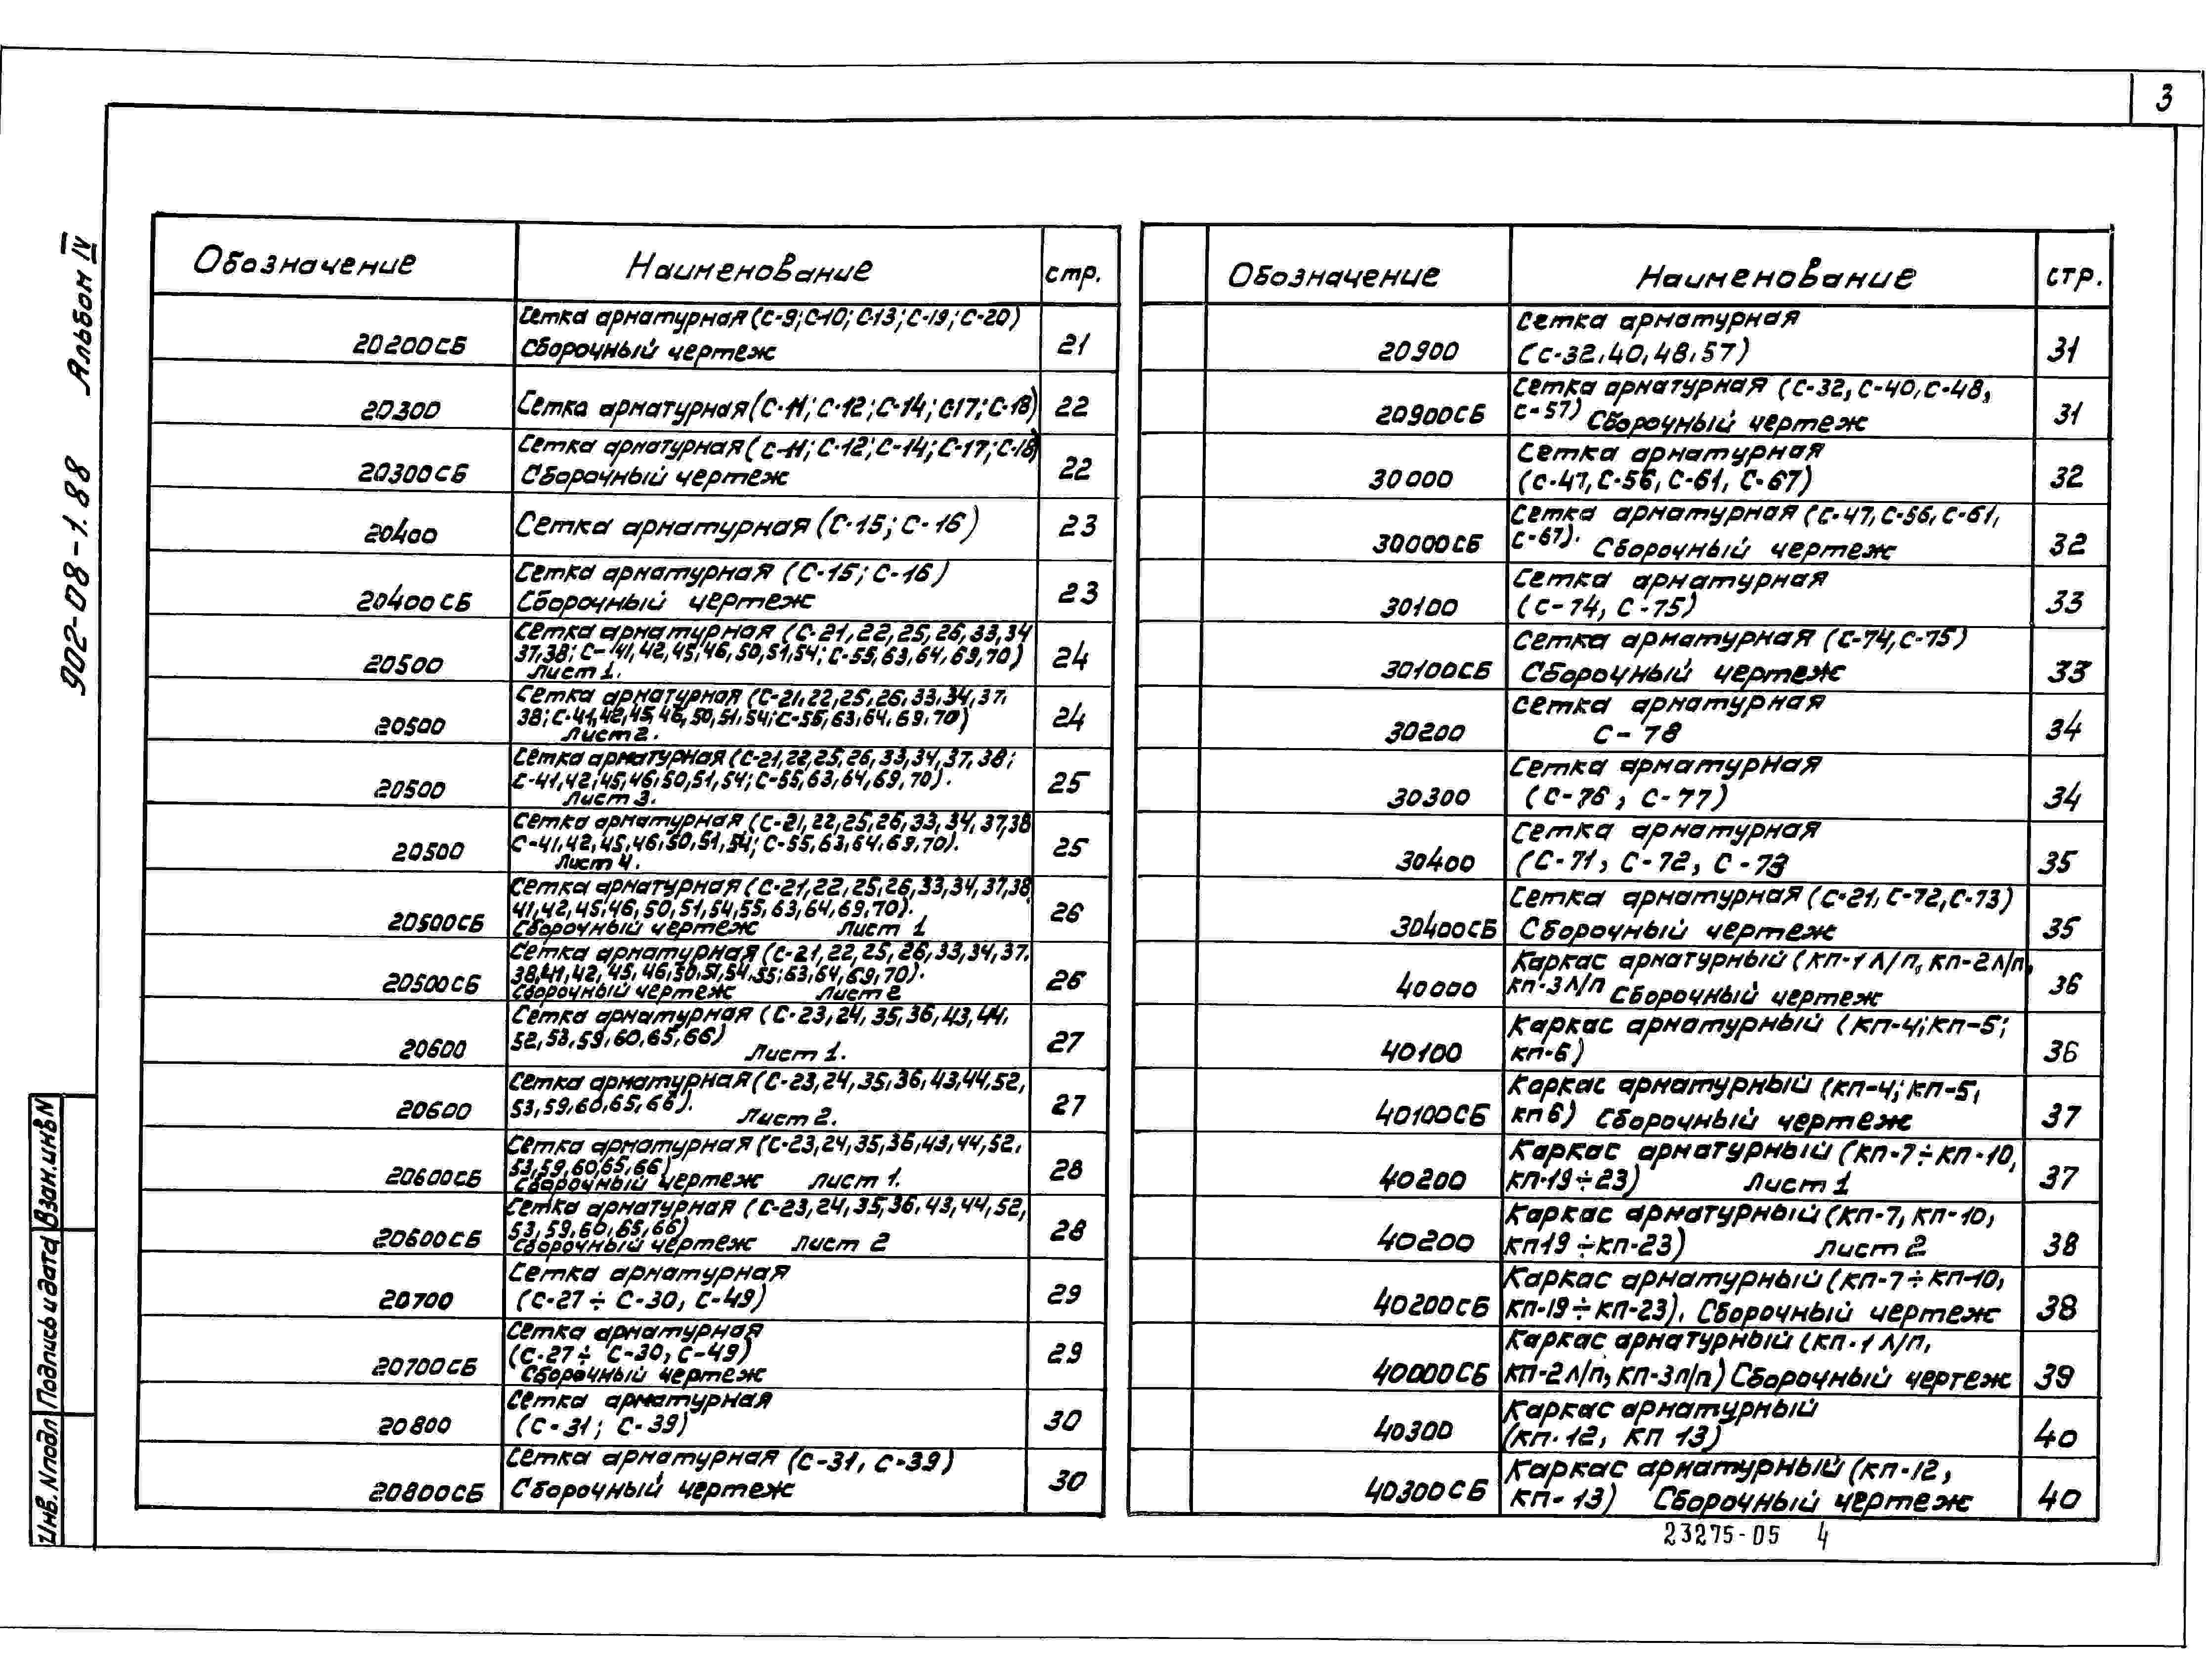 3
902-08-1.88 Альбом IV
Обозначение Наименование стр.
20200СБ Сетка арматурная (С-9; С-10; С-13; С-19; С-20)
Сборочный чертеж 21
20300 Сетка арматурная (С-11; С-12; С-14; С17; С-18) 22
20300СБ Сетка арматурная (С-11; С-12; С-14; С-17; С-18)
Сборочный чертеж 22
20400 Сетка арматурная (С-15; С-16) 23
20400СБ Сетка арматурная (С-15; С-16)
Сборочный чертеж 23
20500 Сетка арматурная (С-21, 22, 25, 26, 33, 34
37, 38; С-41, 42, 45, 46, 50, 51, 54; С-55, 63, 64, 69, 70)
Лист 1. 24
20500 Сетка арматурная (С-21, 22, 25, 26, 33, 34, 37,
38; С-41, 42, 45, 46, 50, 51, 54; С-55, 63, 64, 69, 70)
Лист 2. 24
20500 Сетка арматурная (С-21, 22, 25, 26, 33, 34, 37, 38;
С-41, 42, 45, 46, 50, 51, 54; С-55, 63, 64, 69, 70).
Лист 3. 25
20500 Сетка арматурная (С-21, 22, 25, 26, 33, 34, 37, 38
С-41, 42, 45, 46, 50, 51, 54; С-55, 63, 64, 69, 70).
Лист 4. 25
20500СБ Сетка арматурная (С-21, 22, 25, 26, 33, 34, 37, 38
41, 42, 45, 46, 50, 51, 54, 55, 63, 64, 69, 70).
Сборочный чертеж Лист 1 26
20500СБ Сетка арматурная (С-21, 22, 25, 26, 33, 34, 37,
38, 41, 42, 45, 46, 50, 51, 54, 55; 63, 64, 69, 70).
Сборочный чертеж Лист 2 26
20600 Сетка арматурная (С-23, 24, 35, 36, 43, 44,
52, 53, 59, 60, 65, 66) Лист 1. 27
20600 Сетка арматурная (С-23, 24, 35, 36, 43, 44, 52,
53, 59, 60, 65, 66). Лист 2. 27
20600СБ Сетка арматурная (С-23, 24, 35, 36, 43, 44, 52,
53, 59, 60, 65, 66)
Сборочный чертеж Лист 1. 28
20600СБ Сетка арматурная (С-23, 24, 35, 36, 43, 44, 52,
53, 59, 60, 65, 66)
Сборочный чертеж Лист 2 28
20700 Сетка арматурная
(С-27 ÷ С-30, С-49) 29
20700СБ Сетка арматурная
(С-27 ÷ С-30, С-49)
Сборочный чертеж 29
20800 Сетка арматурная
(С-31; С-39) 30
20800СБ Сетка арматурная (С-31, С-39)
Сборочный чертеж 30
Обозначение Наименование стр.
20900 Сетка арматурная
(С-32, 40, 48, 57) 31
20900СБ Сетка арматурная (С-32, С-40, С-48,
С-57) Сборочный чертеж 31
30000 Сетка арматурная
(С-47, С-56, С-61, С-67) 32
30000СБ Сетка арматурная (С-47, С-56, С-61,
С-67). Сборочный чертеж 32
30100 Сетка арматурная
(С-74, С-75) 33
30100СБ Сетка арматурная (С-74, С-75)
Сборочный чертеж 33
30200 Сетка арматурная
С-78 34
30300 Сетка арматурная
(С-76, С-77) 34
30400 Сетка арматурная
(С-71, С-72, С-73 35
30400СБ Сетка арматурная (С-21, С-72, С-73)
Сборочный чертеж 35
40000 Каркас арматурный (КП-1 Л/П, КП-2 Л/П,
КП-3 Л/П Сборочный чертеж 36
40100 Каркас арматурный (КП-4; КП-5;
КП-6) 36
40100СБ Каркас арматурный (КП-4; КП-5,
КП6) Сборочный чертеж 37
40200 Каркас арматурный (КП-7 ÷ КП-10,
КП-19 ÷ 23) Лист 1 37
40200 Каркас арматурный (КП-7, КП-10,
КП19 ÷ КП-23) Лист 2 38
40200СБ Каркас арматурный (КП-7 ÷ КП-10,
КП-19 ÷ КП-23). Сборочный чертеж 38
40000СБ Каркас арматурный (КП-1 Л/П,
КП-2 Л/П, КП-3 Л/П) Сборочный чертеж 39
40300 Каркас арматурный
(КП-12, КП 13) 40
40300СБ Каркас арматурный (КП-12,
КП-13) Сборочный чертеж 40
Инв. N подл Подпись и дата Взам. инв N
23275-05 4